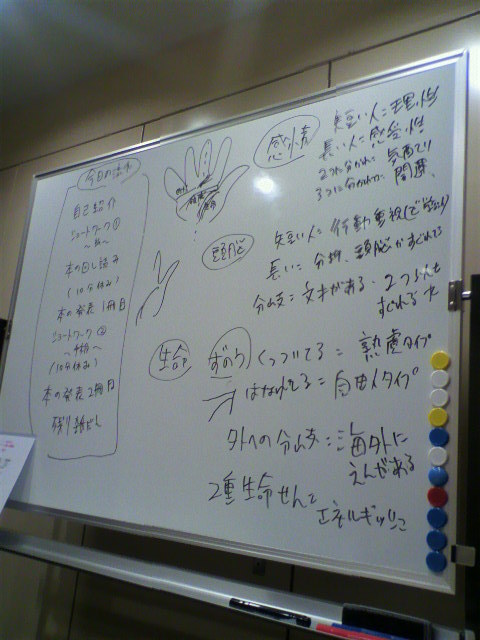 今日の流れ
自己紹介
ニュートワーク①
本の回し読み
(10分休み)
本の発表 1冊目
ニュートワーク②
(10分休み)
本の発表2冊目
感情
短い人=理性
長い人=感受性
2つに分かれ
3つに分かれ
頭脳
短い人=行動重視
長い=分析、頭脳がすぐれてる
分岐=文才がある・2つとも
すぐれる
生命
ずのう くっついてる=熟慮タイプ
はなれてる=自由人タイプ
外への分岐=海外に
えんがある
2重生命せんこ
エネルギッシュ